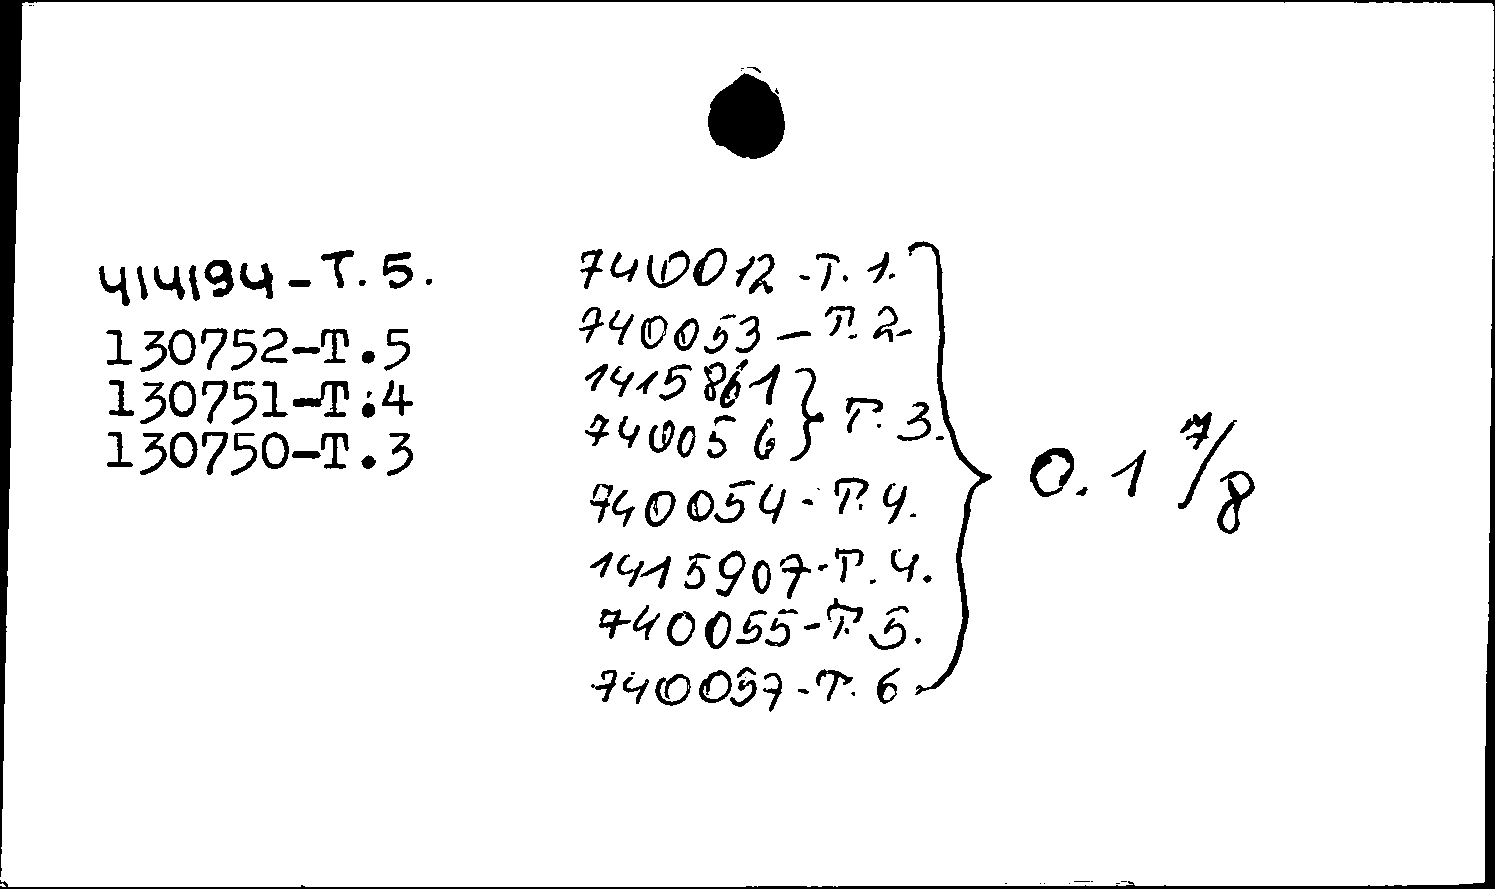 414194-Т.5.
130752-Т.5
130751-Т.4
130750-Т.3
740012-Т.1.
740053-Т.2.
1415861
740056
Т.3.
740054-Т.4.
1415907-Т.4.
740055-Т.5.
740057-Т.6.
0.1 7/8